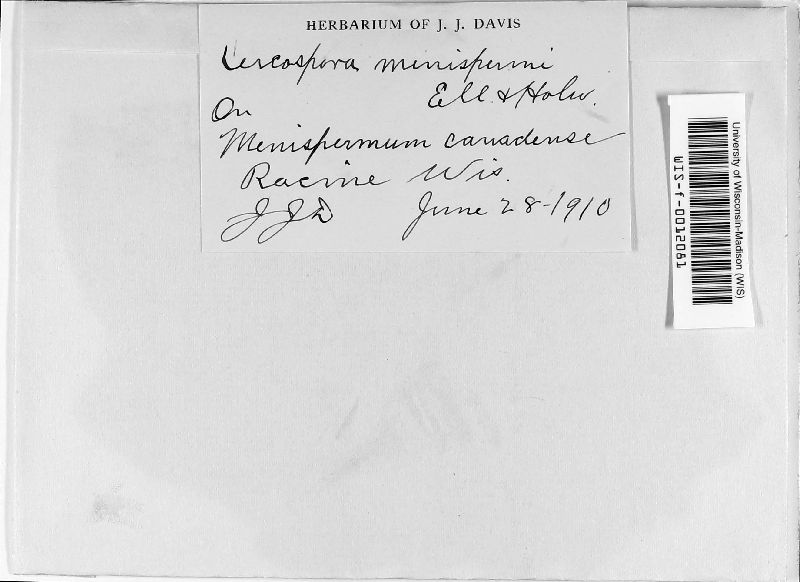 HERBARIUM OF J. J. DAVIS
Cercospora menispermi
Ell. & Holw.
On
Menispermum canadense
Racine Wis.
JJD June 28-1910
University of Wisconsin-Madison (WIS)
WIS-f-0012061